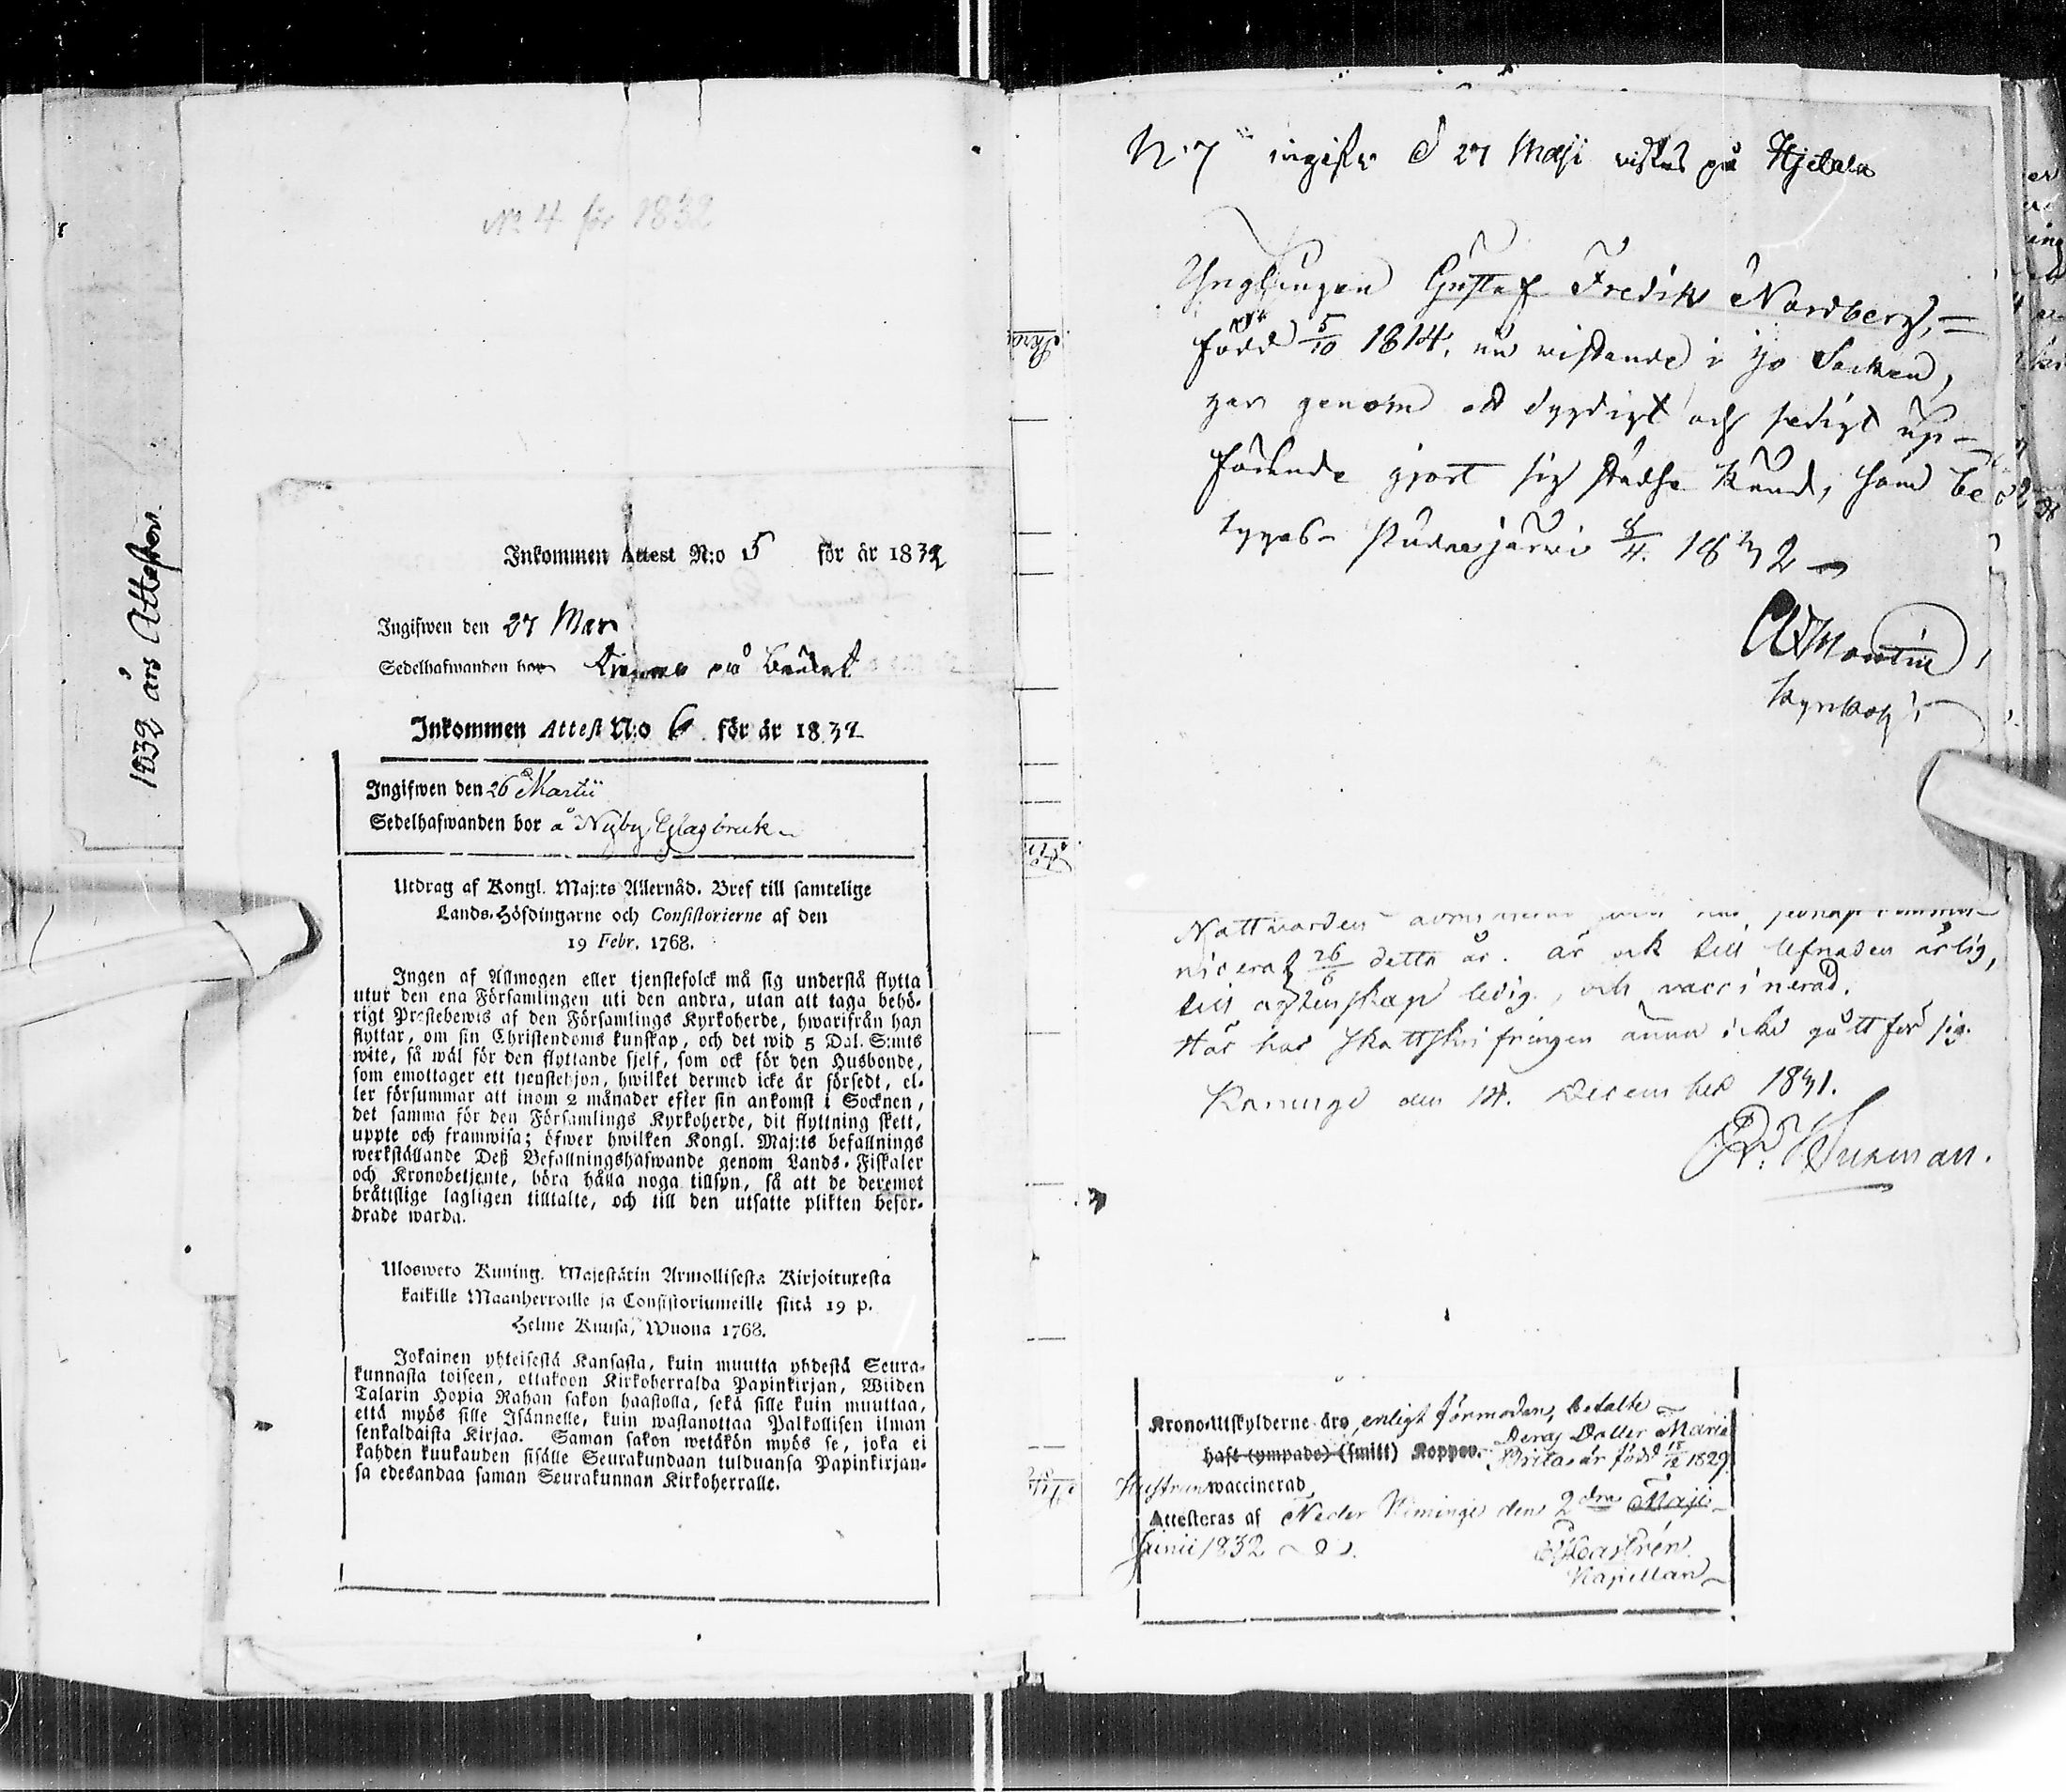 1832 års Attester.
No 4 för 1832
Inkommen Attest N:o 5 för år 1832
Ingifwen den 27 Mars
Sedelhafwanden bor
Inkommen Attest N:o 6 för år 1832
Ingifwen den 26 Martii
Sedelhafwanden bor å Nyby Glasbruk
Utdrag af Kongl. Maj:ts Allernåd. Bref till samtelige
Lands-Höfdingarne och Consistorierne af den
19 Febr. 1768.
Ingen af Allmogen eller tjenstefolck må sig understå flytta
utur den ena Församlingen uti den andra, utan att taga behö-
rigt Prestebewis af den Församlings Kyrkoherde, hwarifrån han
flyttar, om sin Christendoms kunskap, och det wid 5 Dal. S:mts
wite, så wäl för den flyttande sjelf, som ock för den Husbonde,
som emottager ett tjenstehjon, hwilket dermed icke är försedt, el-
ler försummar att inom 2 månader efter sin ankomst i Socknen,
det samma för den Församlings Kyrkoherde, dit flyttning skett,
uppte och framwisa; öfwer hwilken Kongl. Maj:ts befallnings
werkställande Deß Befallningshafwande genom Lands-Fiskaler
och Kronobetjente, böra hålla noga tillsyn, så att de deremot
bråttslige lagligen tilltalte, och till den utsatte plikten befor-
drade warda.
Ulosweto Kuning. Majestätin Armollisesta Kirjoituxesta
kaikille Maanherroille ja Consistoriumeille siitä 19 p.
Helme Kuusa, Wuona 1768.
Jokainen yhteisestä Kansasta, kuin muutta yhdestä Seura-
kunnasta toiseen, ottakoon Kirkoherralda Papinkirjan, Wiiden
Talarin Hopia Rahan sakon haastolla, sekä sille kuin muuttaa,
että myös sille Isännelle, kuin wastanottaa Palkollisen ilman
senkaldaista Kirjaa. Saman sakon wetäkön myös se, joka ei
kahden kuukauden sisälle Seurakundaan tulduansa Papinkirjan-
sa edesandaa saman Seurakunnan Kirkoherralle.
N:7 ingifw d 27 Maji vistas på Hjetala
Ynglingen Gustaf Fredik Nordberg,
född 5/10 1814, nu vistande i Ijo Socken,
har genom ett dygdigt och sedigt up-
förande gjort sig stedse känd, som be-
tygas Pudasjärvi 8/4 1832
Kyrkoh
Nattvarden
nicerat 26/6 detta år. är ock till lefnaden ärlig,
till ägtenskap ledig, och vaccinerad.
Här har Skattskrifningen ännu icke gått för sig.
den 14 December 1831.
Kronoutskylderne äro, enligt förmodan, betalte
haft (ympade) (smitt) Koppor. Deras Dotter Maria
Brita är född 15/12 1829.
Hustrun waccinerad
Attesteras af Neder Kiminge den 2dra Maji
Junii 1832
Castrén
Kapellan